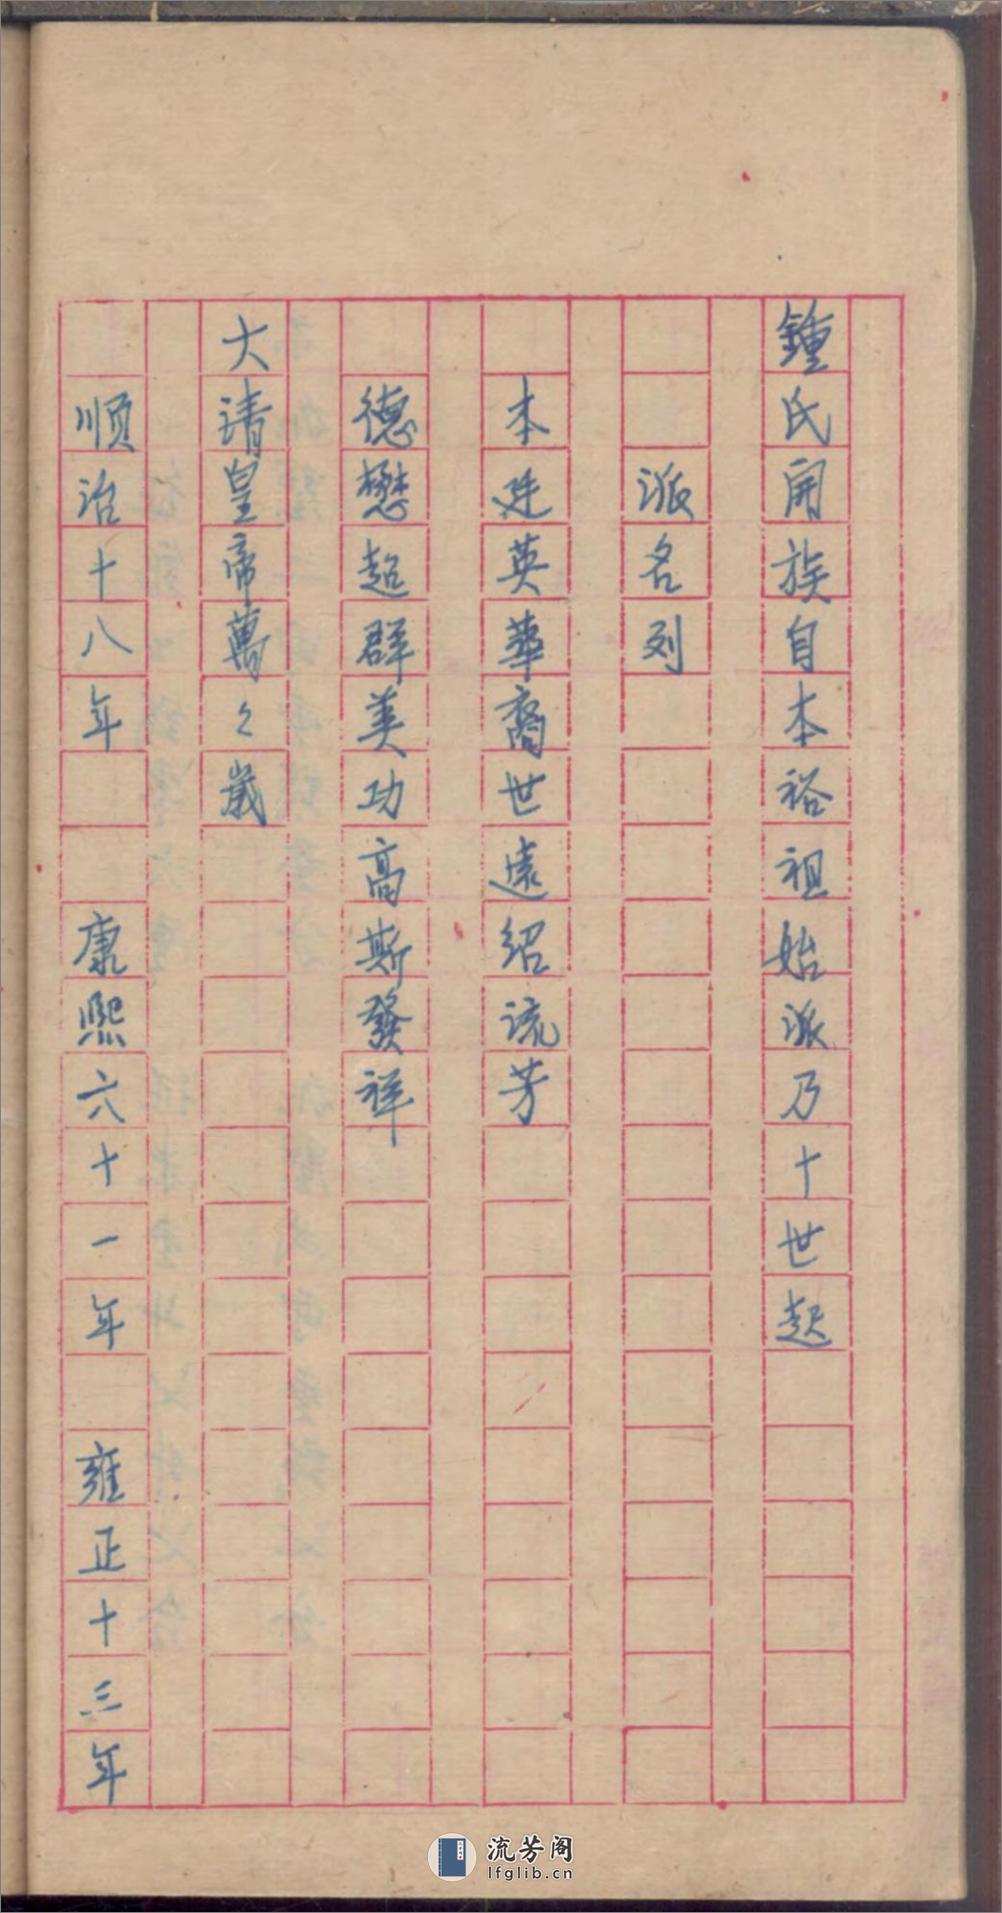 鍾氏開族自本裕祖始派乃十世起
派名列
本廷英華裔世遠紹流芳
德懋超群美功高斯發祥
大清皇帝萬々歲
順治十八年 康熙六十一年 雍正十三年
流芳阁
lfglib.cn